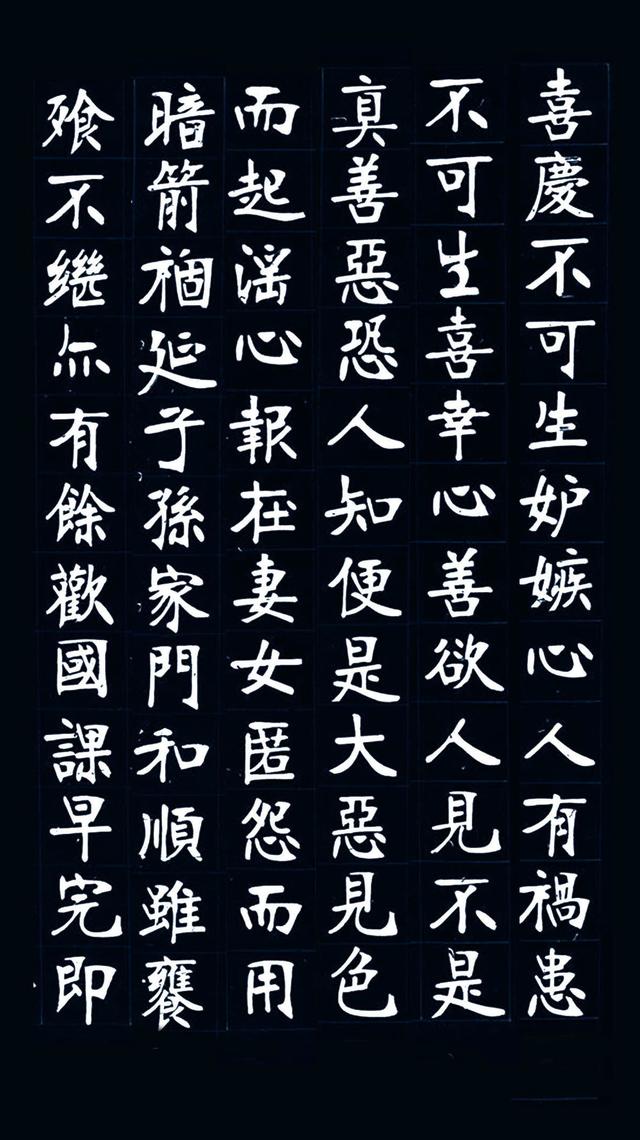 喜慶不可生妒嫉心人有禍患
不可生喜幸心善欲人見不是
真善惡恐人知便是大惡見色
而起滛心報在妻女匿怨而用
暗箭禍延子孫家門和順雖饔
飱不繼亦有餘歡國課早完即